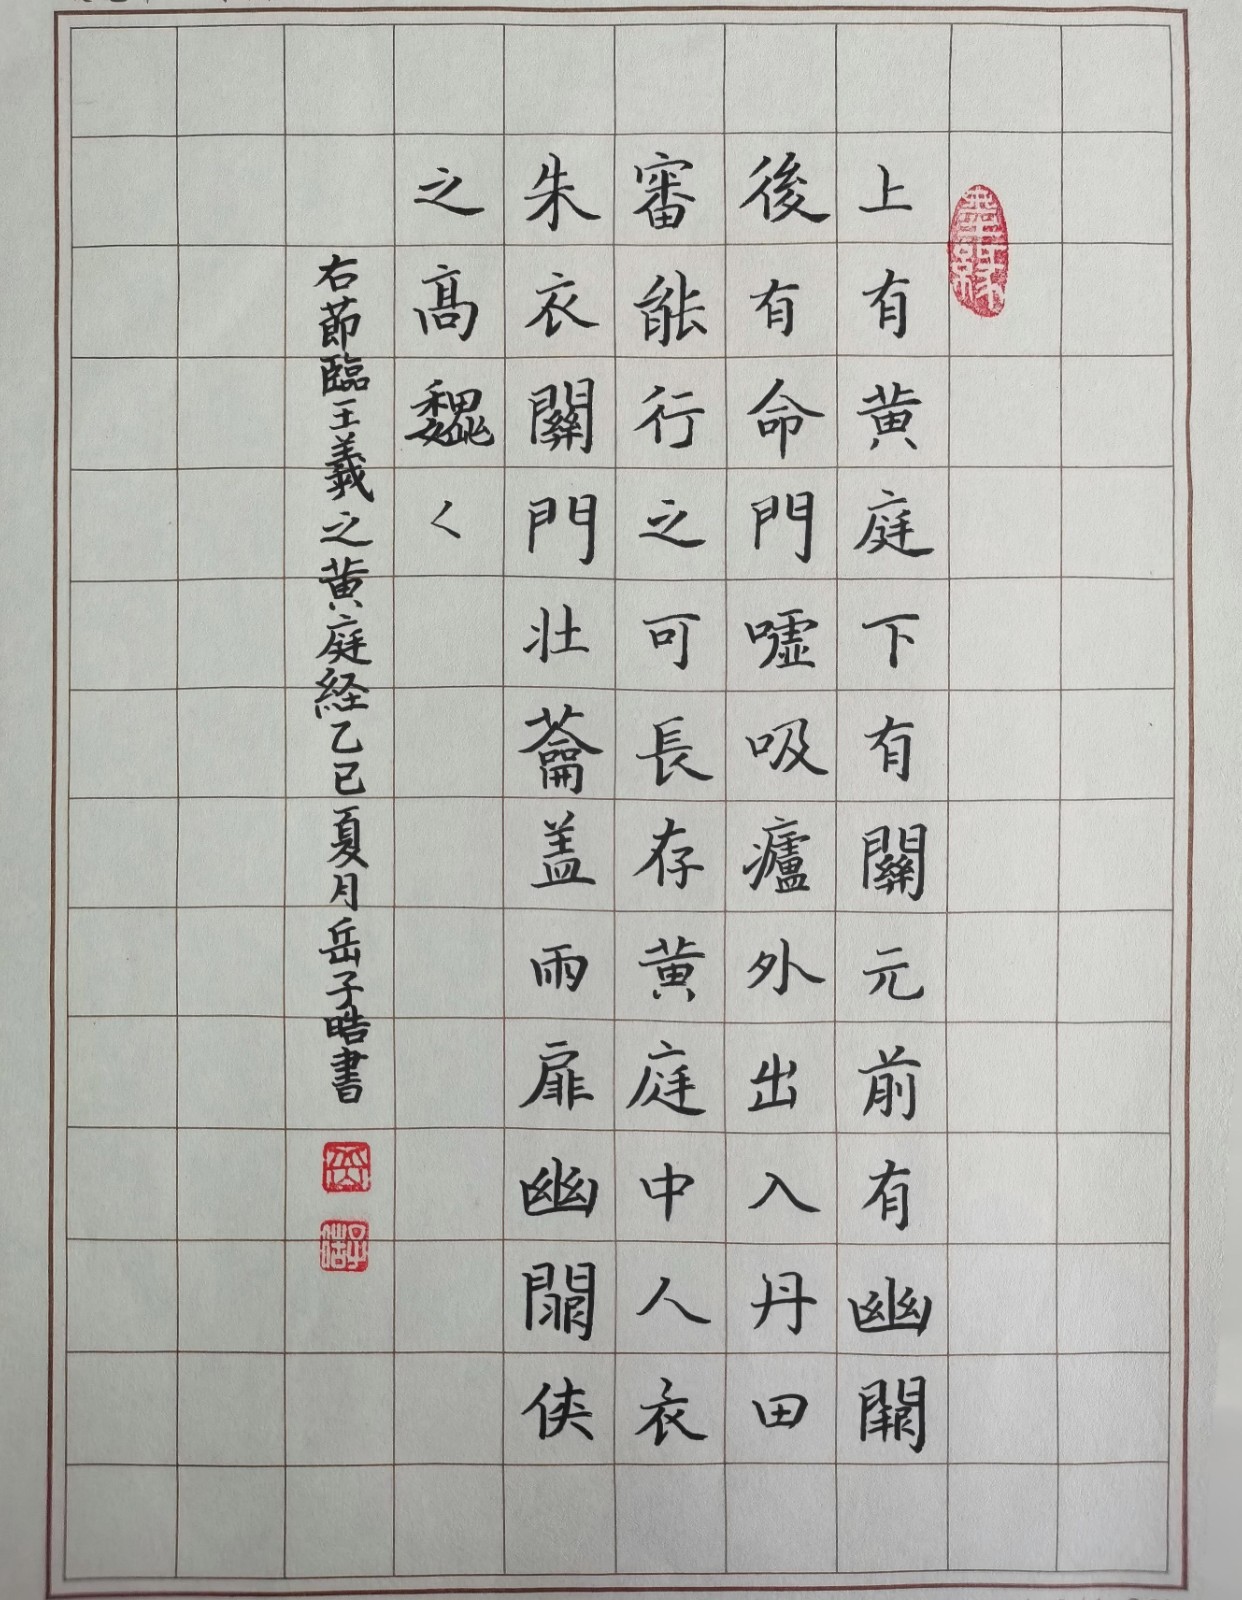 上有黄庭下有關元前有幽闕
後有命門嘘吸廬外出入丹田
審能行之可長存黄庭中人衣
朱衣關門壯蘥盖雨扉幽闕侠
之髙魏く
右節臨王羲之黄庭経乙巳夏月岳子晧書
岳
子晧